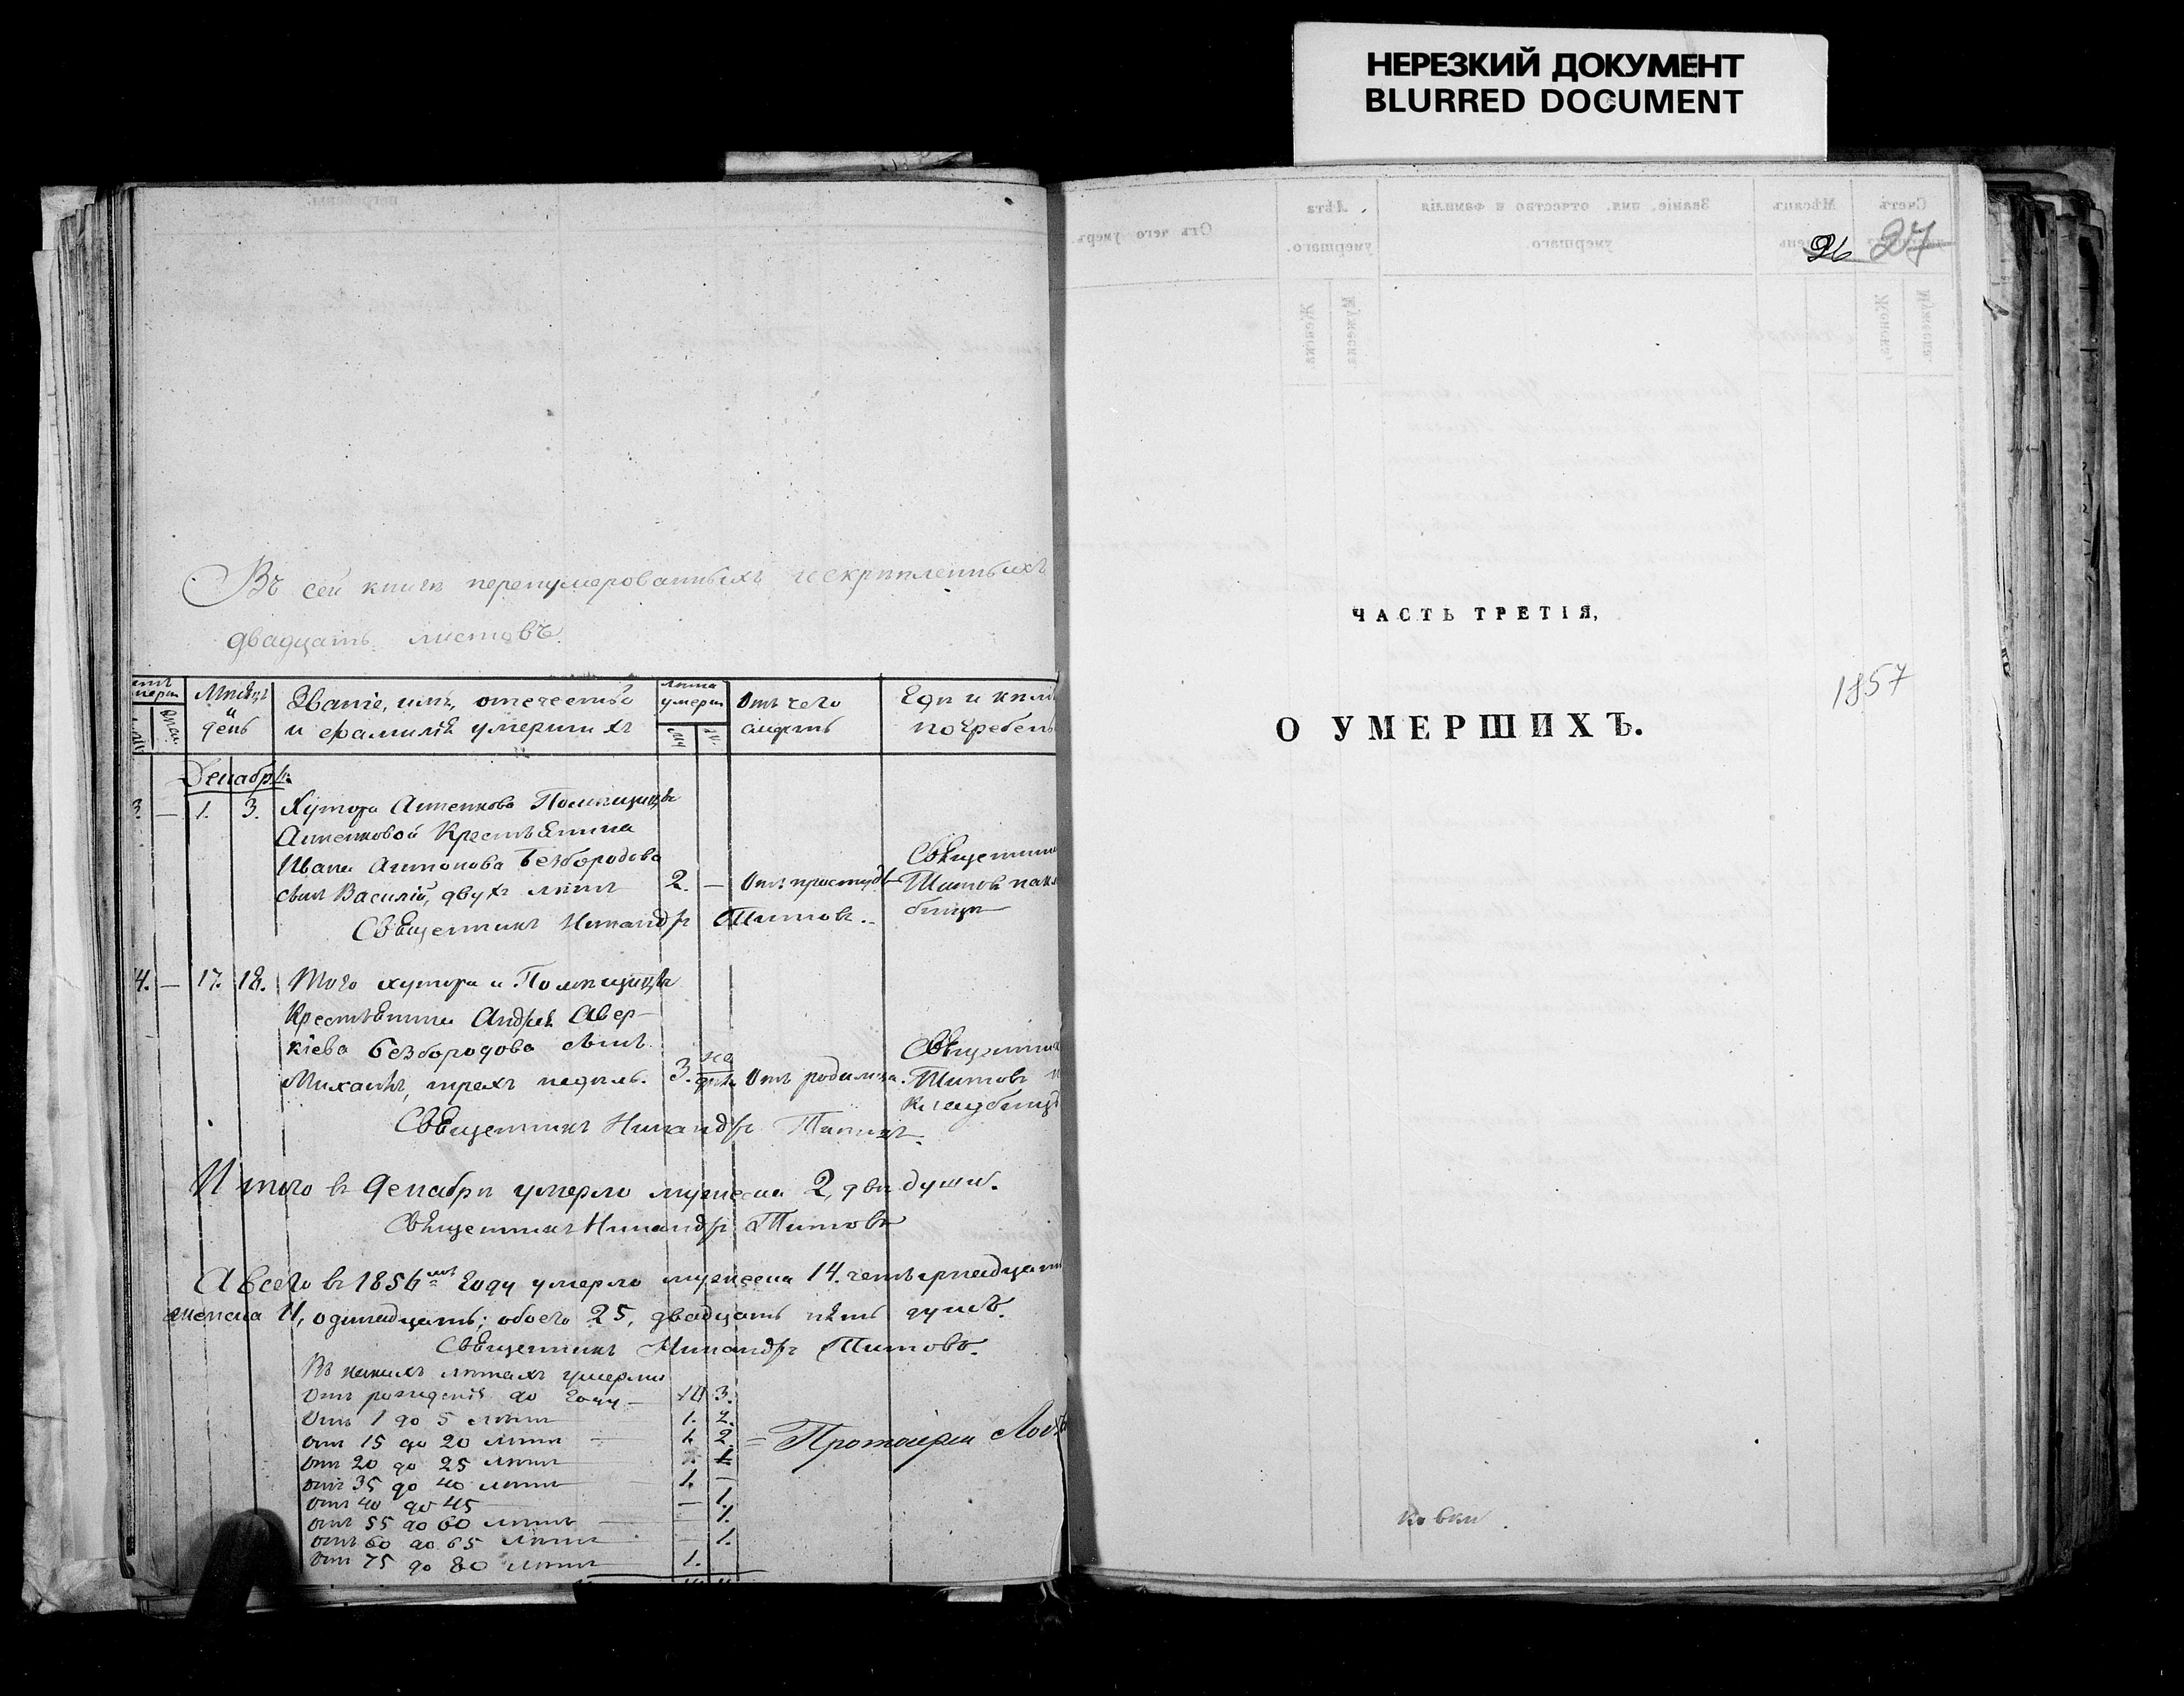 НЕРЕЗКИЙ ДОКУМЕНТ
BLURRED DOCUMENT
Въ сей книгѣ перенумерованныхъ и скрѣпленныхъ
двадцать листовъ.
Мѣсяцъ и день
Званіе, имя, отечество и фамилія умершихъ
лѣта умерш
Отъ чего смерть
Гдѣ и кѣмъ погребены
Декабрь
3 — 1. 3. Хутора Помѣщицы
Крестьянина
Ивана Антонова Безбородова
сынъ Василій, двухъ лѣтъ 2. — Отъ простуды Священникъ Титовъ на
Священникъ Никандръ Титовъ.
4. — 17. 18. Того хутора и Помѣщицы
Крестьянина Андрея Авер-
кіева Безбородова сынъ
Михаилъ, трехъ недѣль. 3. нед. Отъ родимца. Священникъ Титовъ
кладбищѣ
Священникъ Никандръ Титовъ.
Итого въ Декабрѣ умерло мужеска 2, двѣ души.
Священникъ Никандръ Титовъ
А всего въ 1856мъ году умерло мужеска 14. четырнадцать
женска 11, одинадцать; обоего 25, двадцать пять душъ.
Священникъ Никандръ Титовъ.
Въ какихъ лѣтахъ умерли
Отъ рожденія до году — 10 3.
Отъ 1 до 5 лѣтъ 1. 2.
отъ 15 до 20 лѣтъ 1. 2. = Протоіерей
отъ 20 до 25 лѣтъ 1
отъ 35 до 40 лѣтъ 1. —
отъ 40 до 45 — 1.
отъ 55 до 60 лѣтъ — 1.
отъ 60 до 65 лѣтъ — 1.
отъ 75 до 80 лѣтъ 1.
26 27
ЧАСТЬ ТРЕТІЯ,
1857
О УМЕРШИХЪ.